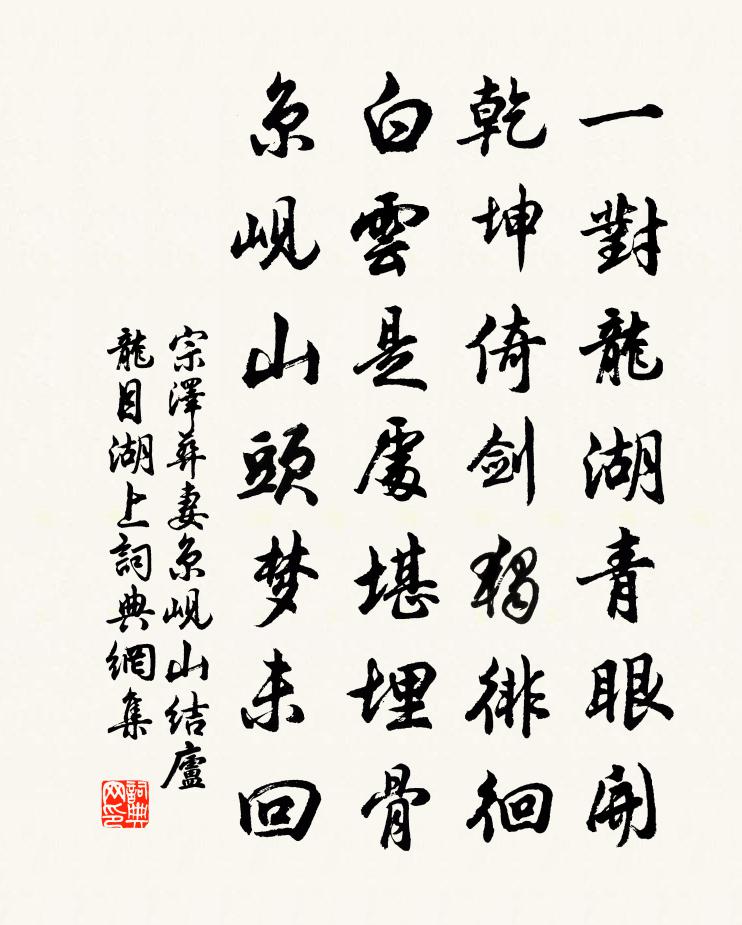 一對龍湖青眼開
乾坤倚劍獨徘徊
白雲是處堪埋骨
京峴山頭梦未回
宗澤葬妻京峴山結廬
龍目湖上詞典網集
詞典
网印